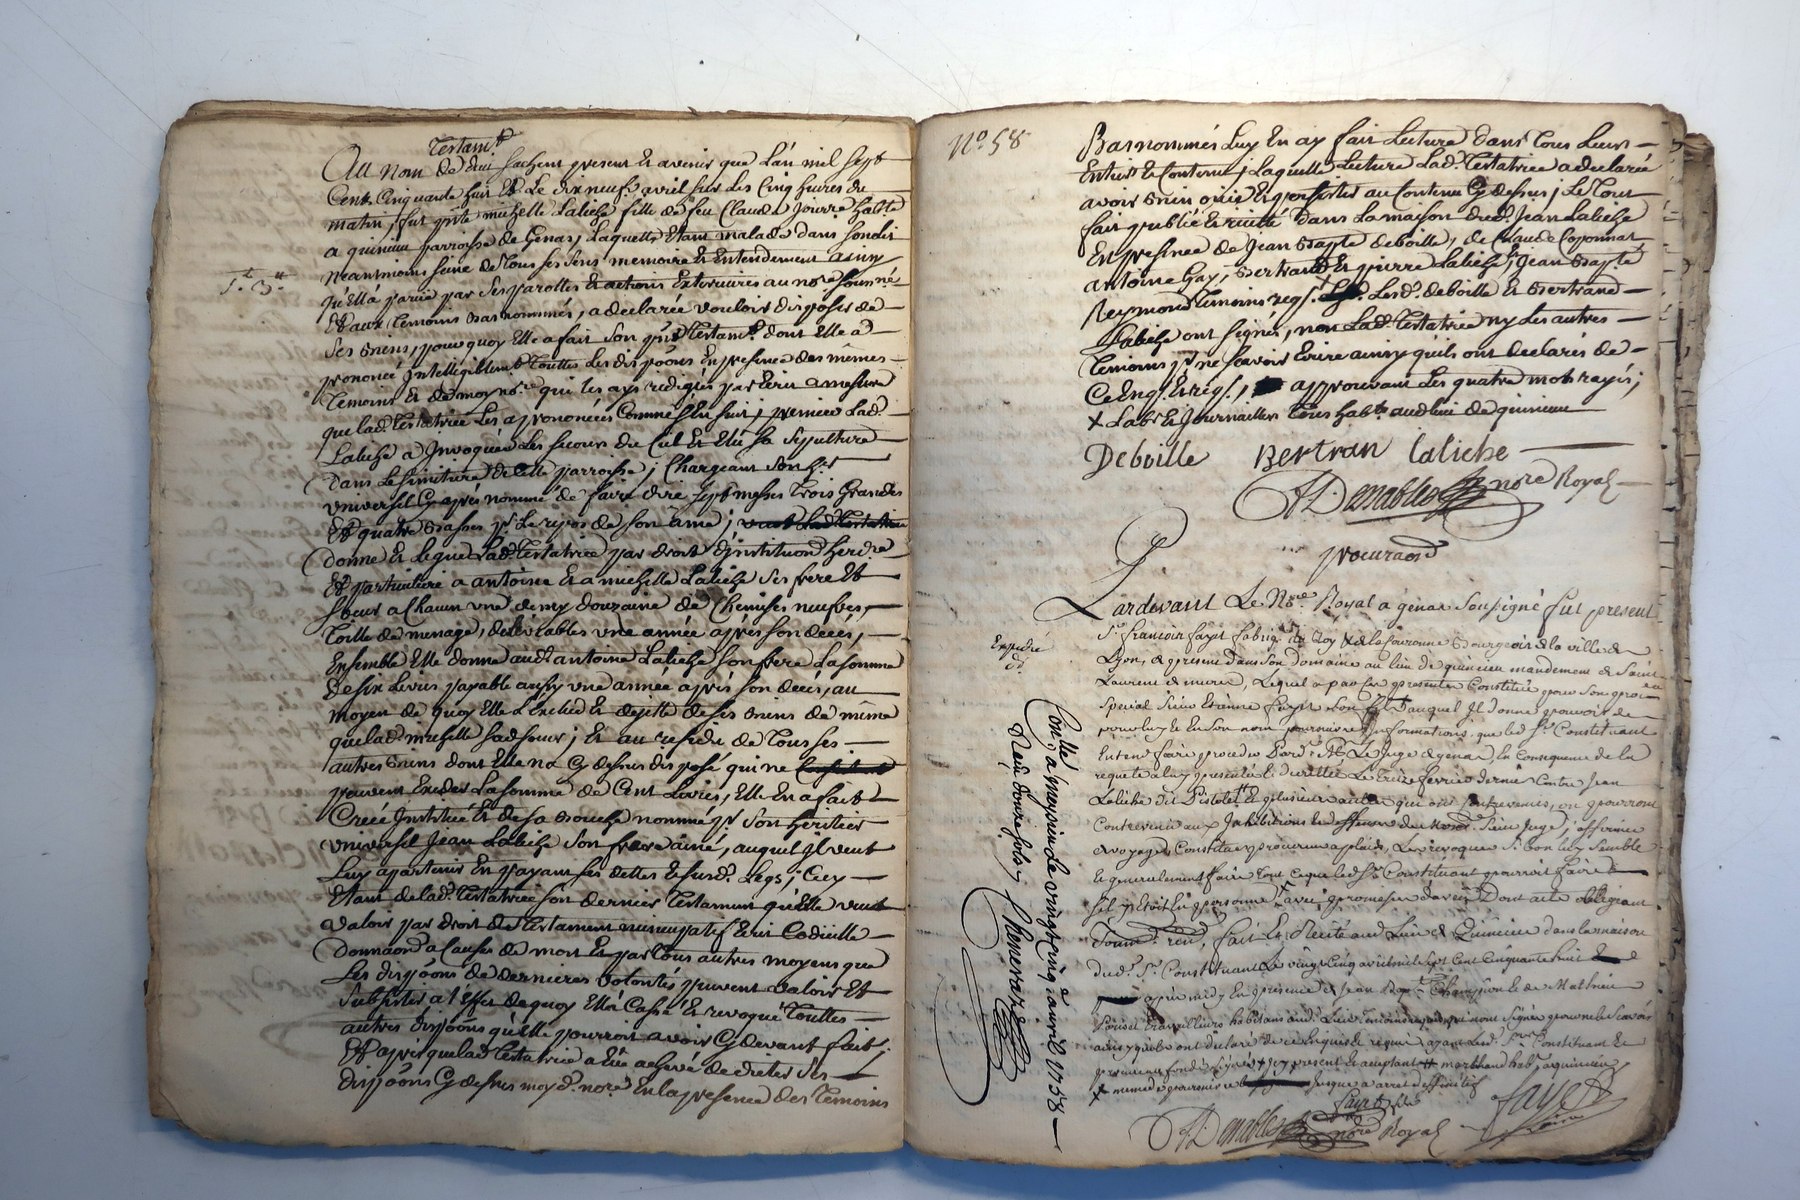 Testamt
Au nom de dieu sachent present et avenir que L'an mil sept
Cent Cinquante huit Et Le dix neufe avril sur Les Cinq heures du
matin, fut pnte michelle Laliche fille de feu Claude Jour.re habte
a quinieu parroisse de Genas, Laquelle Etant malade dans son lit
neantmoins seine de tous ses sens memoire Et Entendement ainsy
qu'Ell'a parue par ses parolles Et actions Exterieures au nore sousné
Et aux temoins bas nommés, a declarée vouloir disposer de
ses biens, pourquoy Elle a fait son pnt testamt dont Elle a
prononcé Intelligiblemt touttes Les dispoôns En presence des mêmes
temoins Et de moy nore qui les ays redigées par Ecrit a mesure
que lad. testatrice Les a prononcées Comme s'En suit; premier Lad.
Laliche a Invoquée Les secours du Ciel Et Elû sa sepulture
dans Le simitiere de cette parroisse; Chargeant son her
universel Cy après nommé de faire dire sept messes trois Grandes
Et quatre basses pr Le repos de son ame;
donne Et Legue Lad. testatrice par droit d'instituôn heredre
Et particuliere a antoine Et a michelle Laliche ses frere Et
soeur a Chacun une demy douzaine de Chemises neufves,
toille de menage, delivrables une année après son decés,
Ensemble Elle donne aud. antoine Laliche son frere La somme
de six Livres payable aussy une année après son decés, au
moyen de quoy Elle L'exclud Et dejette de ses biens de même
que lad. michelle sad. soeur; Et au residu de tous ses
autres biens dont Elle n'a Cy dessus disposé qui ne
peuvent Exceder La somme de Cent Livres, Elle En a fait
Creée Instituée Et de sa bouche nommée pr son heritier
universel Jean Laliche son frere ainé, auquel Il veut
Luy apartenir En payant ses dettes Et susd. Legs; Cecy
Etant de lad. testatrice son dernier testament qu'Elle veut
valoir par droit de testament nuncupatif Ecrit Codicille
donnaôn a Cause de mort Et par tous autres moyens que
Les dispoôns de dernieres volontés peuvent valoir Et
subsister a l'effet de quoy Elle Casse Et revoque touttes
autres dispoôns qu'Elle pourroit avoir Cy devant fait;
Et après que lad. testatrice a Eû achevé de dicter ses
dispoôns Cy dessus moyd. nore En la presence des temoins
No 58
Bas nommés Luy En ay fait Lecture dans tous Leurs
Entier Et Contenu; Laquelle Lecture Lad. testatrice a declarée
avoir bien ouïe Et persister au Contenu Cy dessus; Le tout
fait publié Et recitté dans La maison dud. Jean Laliche
En presence de Jean bapte deboille, de Claude Coponnat
antoine Gay, bertrand Et pierre Laliche, Jean bapte
Reymond temoins reqs. Lesd. deboille Et bertrand
Laliche ont signés, non Lad. testatrice ny Les autres
temoins pr ne sçavoir Ecrire ainsy qu'ils ont declarés de
Ce Enqs. Et reqs., approuvant Les quatre mots rayés;
+ Labr. Et Journailler tous habts aud. lieu de quinieu
Deboille Bertran laliche
Desnables nore Royal
procuraôn
Pardevant Le Nore Royal a genas soussigné fut present
Sr francois fayet fabriqt du Roy bourgeois de la ville de
Lyon, de present dans son domaine au lieu de quinieu mandement de Saint
Laurent de mure, Lequel a par ces presentes Constitué pour son procr
special Sieur Etienne fayet son fils auquel Il donne pouvoir de
pour luy Et En son nom poursuivre Informations, que led. Sr Constituant
Entend faire proceder Pard. Le Juge de genas, En Consequence de la
requete a luy presentée Le treize fevrier dernier Contre Jean
Laliche dit Pistolet Et plusieurs autres qui ont Contrevenus, ou pourront
Contrevenir aux Inhibitions Et deffences dud. Sieur Juge; affirmer
voyages, Constituer procureur a plaids, Les revoquer Sy bon luy semble
Et generalement faire tout Ceque led. Sr Constituant pourroit faire
sil y Etoit En personne, avec promesse d'avoir Dont acte obligeant
fait Et Recité aud. Lieu de Quinieu dans la maison
dud. Sr Constituant Le vingt Cinq avril mil sept Cent Cinquante huit
après midy En presence de Jean Bapte Champion Et de Mathieu
travailleurs habitans aud. Lieu temoins requis qui n'ont signés pour ne le sçavoir
ainsy qu'ils ont declaré de ce Enquis Et requis ayant Led. Sr Constituant Et
present Et acceptant marchand habt a quinieu
jusque a arret deffinitif
fayet fils
fayet
Desnables nore Royal
Expedié
Conllé, a meyzieu Le vingt Cinq avril 1758
Reçu douze sols